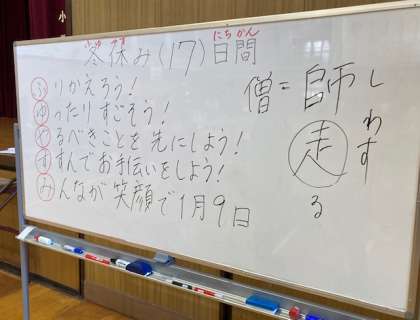 冬休み(17)日間
ふゆやす
にちかん
ふりかえろう!
ゆったりすごそう!
やるべきことを先にしよう!
すすんでお手伝いをしよう!
みんなが笑顔で1月9日
僧=師
走る
しわす
小